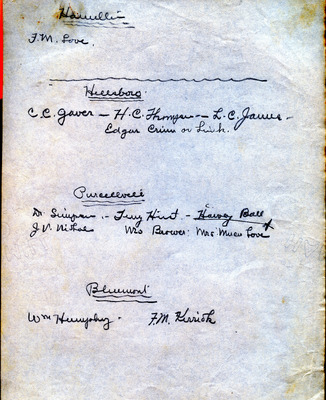 Hamilton
F. M. Love.
Hillsboro.
C. C. Gaver — H. C. Thompson — L. C. James -
Edgar Crim or
Purcellville
Dr Simpson - Hirst - Harvey Ball
J. V. Nichols Mrs Brower. Mrs Love
Bluemont
Wm Humphrey. F. M.